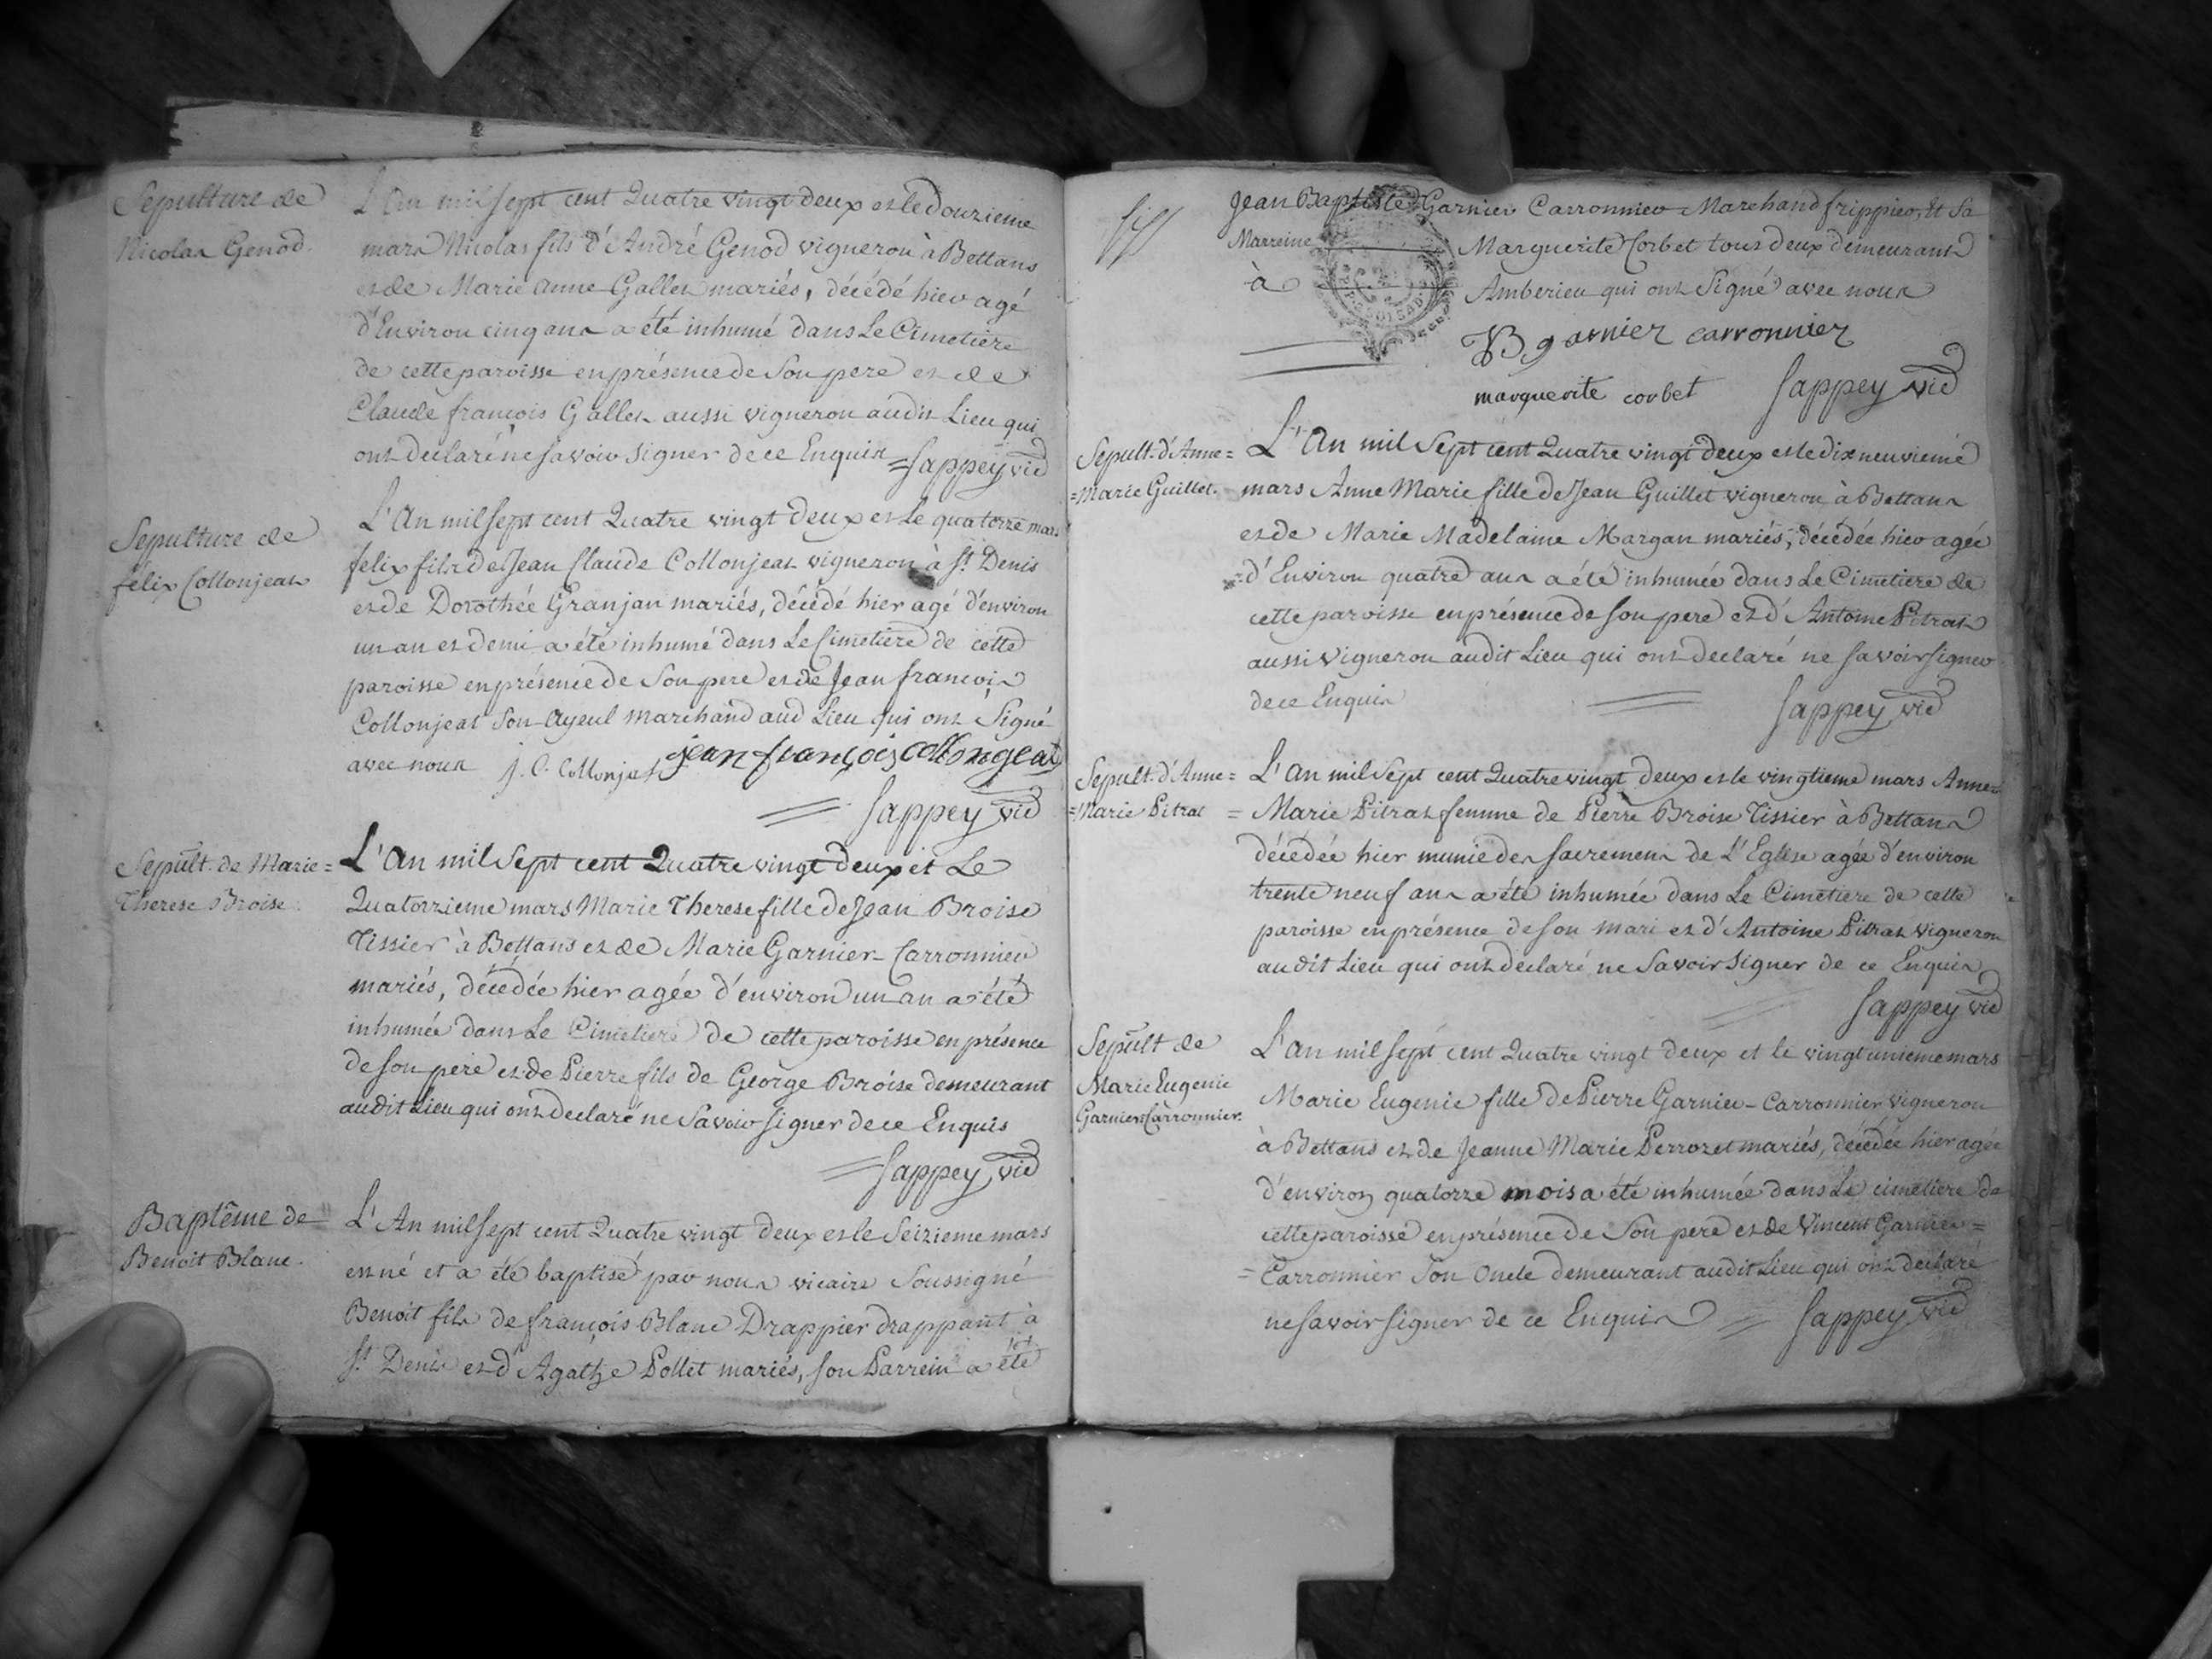 Sepulture de
Nicolas Genod.
L'An mil sept cent Quatre vingt deux et le douzieme
mars Nicolas fils d'André Genod vigneron à Bettans
et de Marie Anne Gallet mariés, décédé hier agé
d'Environ cinq ans a été inhumé dans Le Cimetiere
de cette paroisse en présence de Son pere et de
Claude françois Gallet aussi vigneron audit Lieu qui
ont declaré ne savoir signer de ce Enquis = Sappey vic
Sepulture de
félix Collonjeat
L'An mil sept cent Quatre vingt deux et Le quatorze mars
felix fils de Jean Claude Collonjeat vigneron à St. Denis
et de Dorothée Granjan mariés, décédé hier agé d'environ
un an et demi a été inhumé dans Le Cimetiere de cette
paroisse en présence de Son pere et de Jean françois
Collonjeat Son Ayeul Marchand aud Lieu qui ont Signé
avec nous J. C. Collonjeat jean françois collongeat
Sappey vic
Sepult. de Marie =
Therese Broise
L'An mil Sept cent Quatre vingt deux et Le
Quatorzieme mars Marie Therese fille de Jean Broise
Tissier à Bettans et de Marie Garnier-Carronnier
mariés, décédée hier agée d'environ un an a été
inhumée dans Le Cimetiere de cette paroisse en présence
de son pere et de Pierre fils de George Broise demeurant
audit Lieu qui ont declaré ne Savoir signer de ce Enquis
Sappey vic
Baptême de
Benoit Blanc.
L'An mil sept cent Quatre vingt deux et le Seizieme mars
est né et a été baptisé par nous vicaire Soussigné
Benoit fils de françois Blanc Drappier drappant à
St. Denis et d'Agathe Pollet mariés, son Parrein a été
Jean Baptiste Garnier Carronnier Marchand frippier, Et Sa
Marreine Marguerite Corbet tous deux demeurants
à Amberieu qui ont Signé avec nous
JB garnier carronnier
marguerite corbet Sappey vic
Sepult. d'Anne =
= Marie Guillet.
L'An mil Sept cent Quatre vingt deux et le dix neuvieme
mars Anne Marie fille de Jean Guillet vigneron à Bettans
et de Marie Madelaine Margan mariés, décédée hier agée
d'Environ quatre ans a été inhumée dans Le Cimetiere de
cette paroisse en présence de son pere et d'Antoine Pitrat
aussi Vigneron audit Lieu qui ont declaré ne savoir signer
de ce Enquis Sappey vic
Sepult. d'Anne =
= Marie Pitrat
L'An mil Sept cent Quatre vingt deux et le vingtieme mars Anne =
= Marie Pitrat femme de Pierre Broise Tissier à Bettans
décédée hier munie des sacremens de L'Eglise agée d'environ
trente neuf ans a été inhumée dans Le Cimetiere de cette
paroisse en présence de son mari et d'Antoine Pitrat vigneron
audit Lieu qui ont declaré ne Savoir Signer de ce Enquis
Sappey vic
Sepult de
Marie Eugenie
Garnier Carronnier.
L'An mil sept cent Quatre vingt deux et le vingt unieme mars
Marie Eugenie fille de Pierre Garnier-Carronnier vigneron
à Bettans et de Jeanne Marie Perrozet mariés, décédée hier agée
d'environ quatorze mois a été inhumée dans Le cimetiere de
cette paroisse en présence de Son pere et de Vincent Garnier =
= Carronnier Son Oncle demeurant audit Lieu qui ont declaré
ne savoir signer de ce Enquis Sappey vic